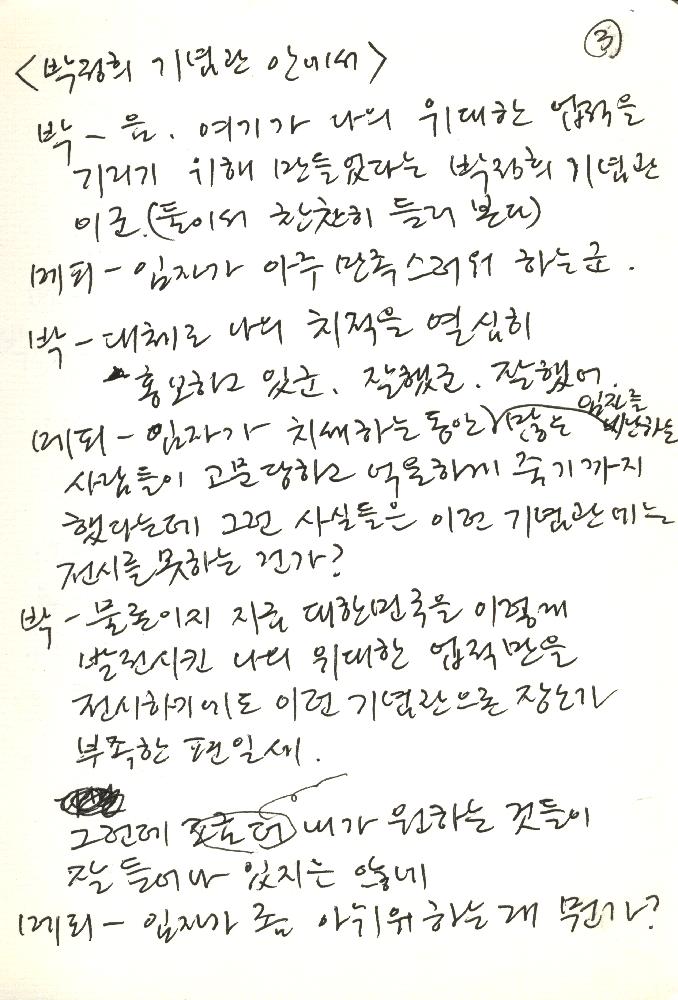 ③
<박정희 기념관 안에서>
박 - 음. 여기가 나의 위대한 업적을
기리기 위해 만들었다는 박정희 기념관
이군.(둘이서 찬찬히 들러 본다)
메피 - 임자가 아주 만족스러워 하는군.
박 - 대체로 나의 치적을 열심히
홍보하고 있군. 잘했군. 잘했어.
임자를
메피 - 임자가 치세하는 동안 많은 비난하는
사람들이 고문당하고 억울하게 죽기까지
했다는데 그런 사실들은 이런 기념관에는
전시를 못하는 건가?
박 - 물론이지 지금 대한민국을 이렇게
발전시킨 나의 위대한 업적만을
전시하기에도 이런 기념관으론 장소가
부족한 편일세.
그런데 내가 원하는 것들이
잘 들어나 있지는 않네
메피 - 임자가 좀 아쉬워하는 게 뭔가?